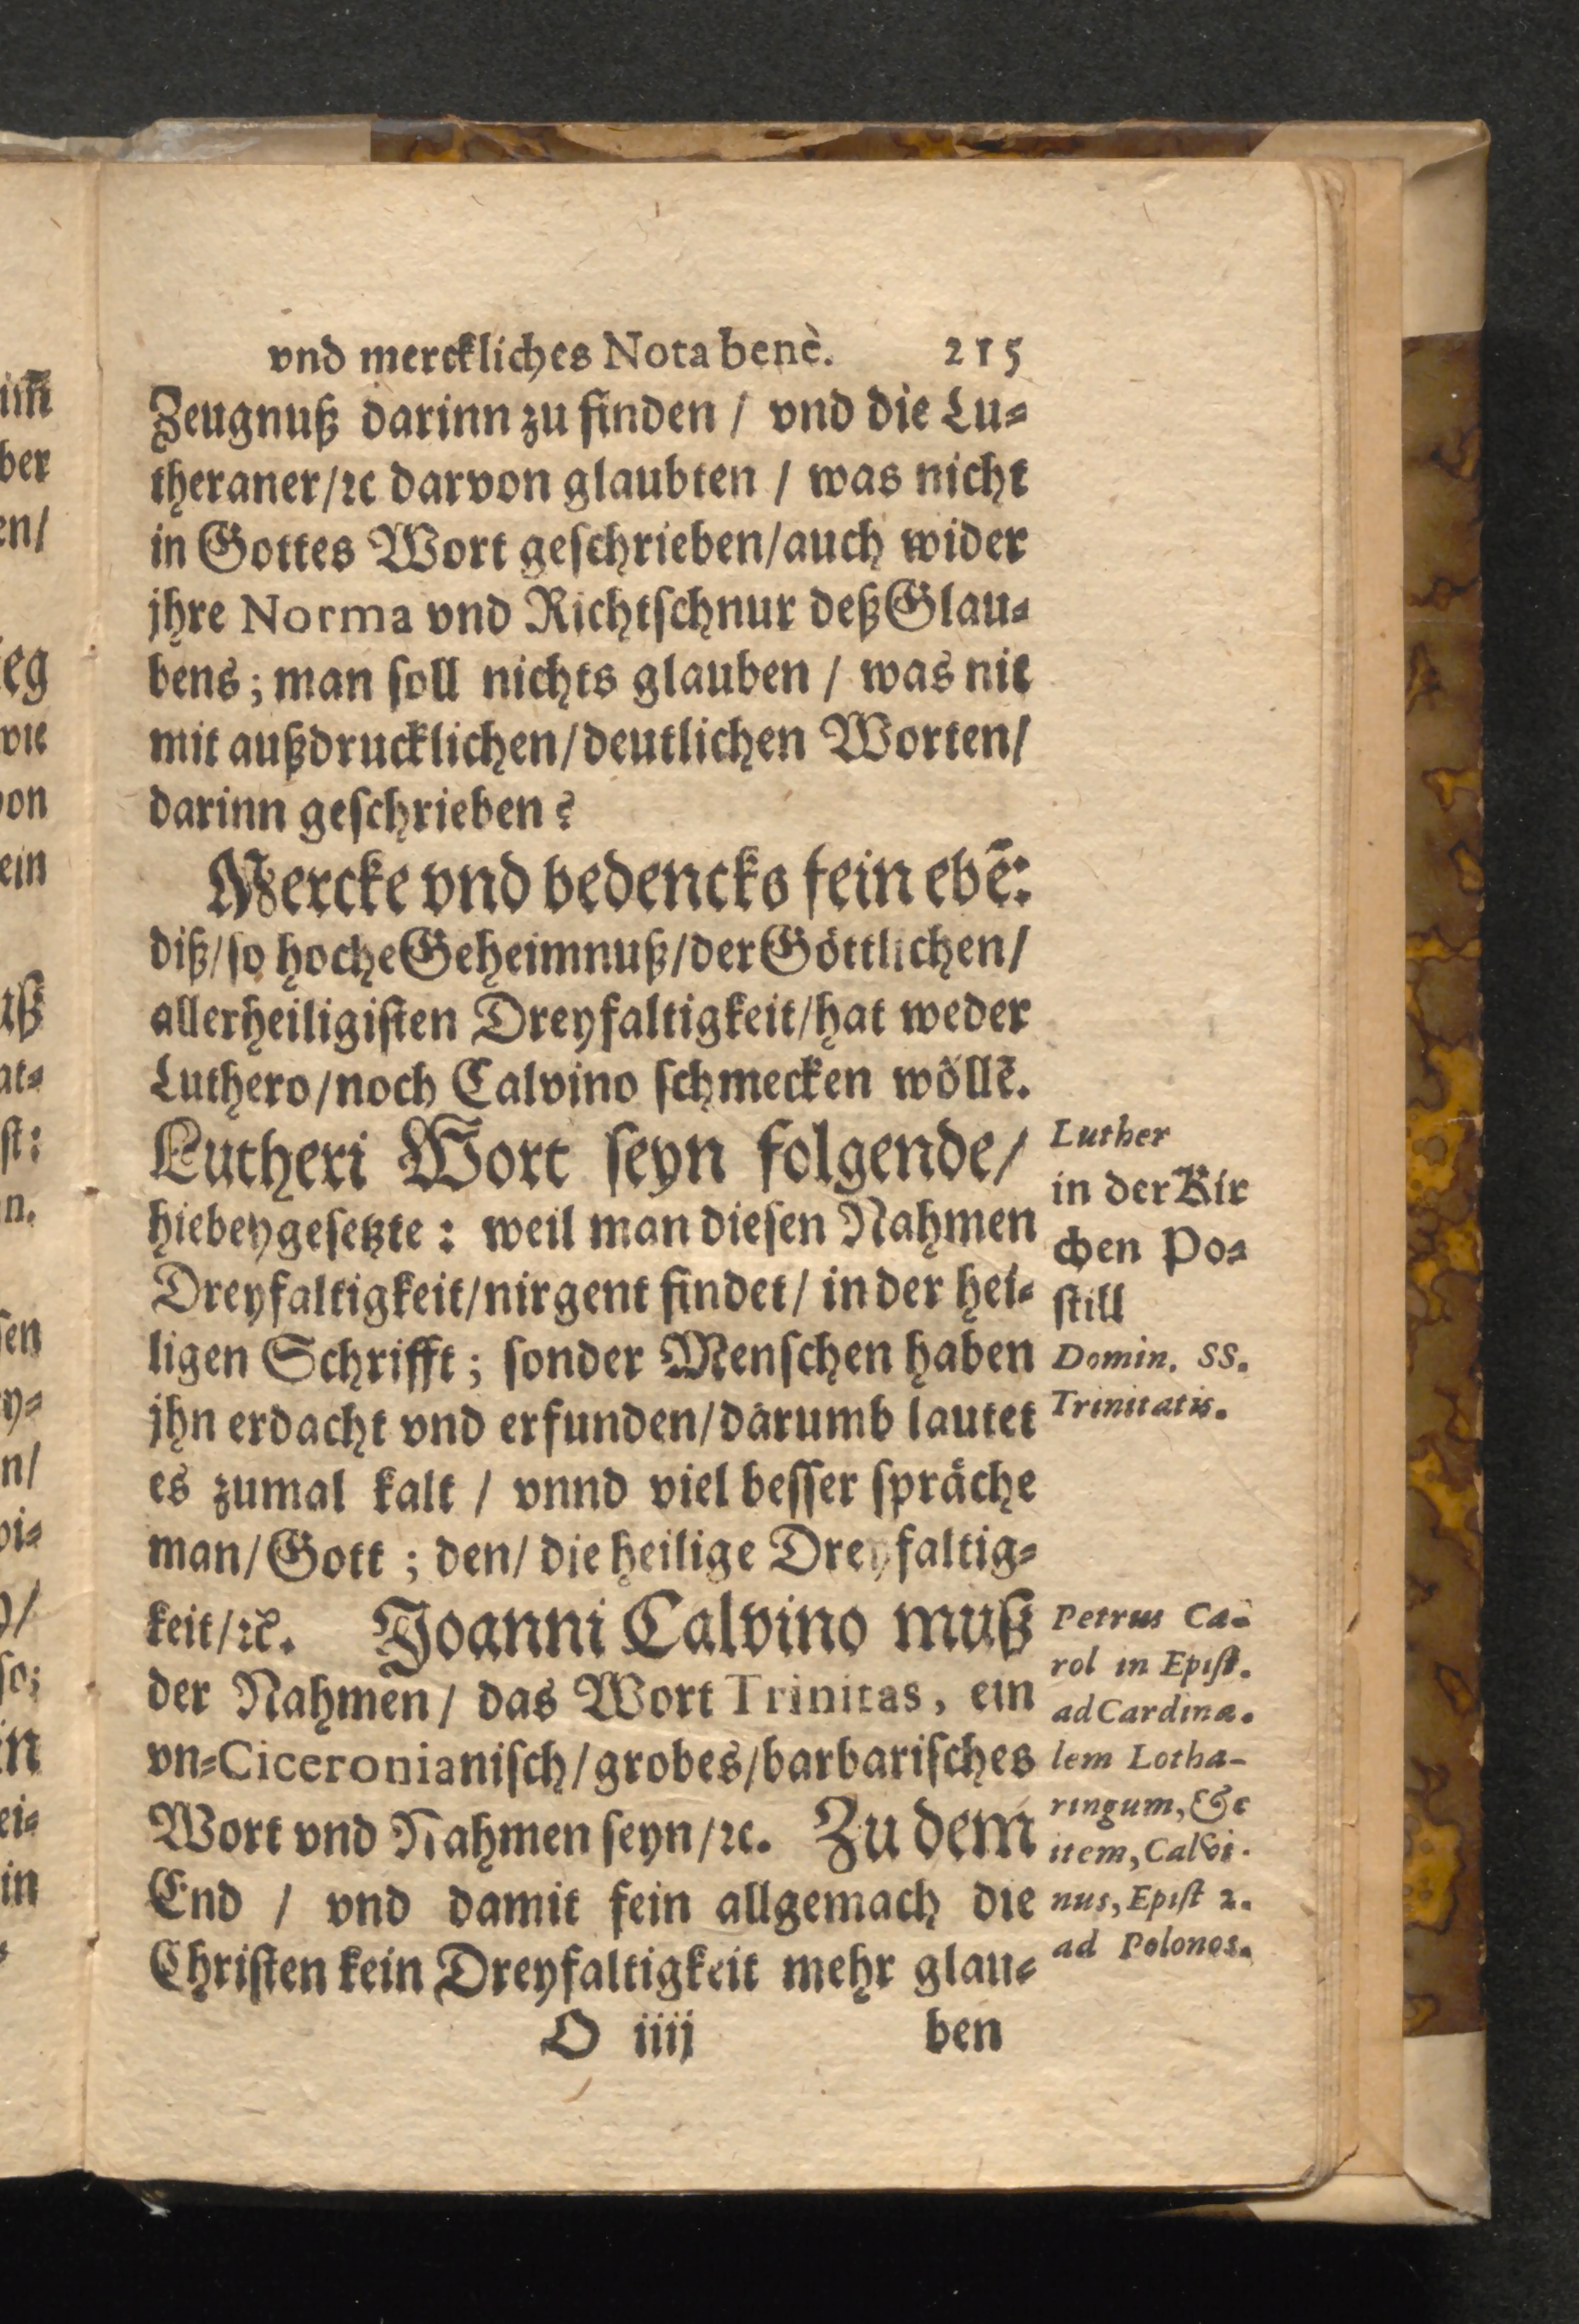 vnd merckliches Nota benè. 215
Zeugnuß darinn zu finden / vnd die Lu⸗
theraner/ꝛc darvon glaubten / was nicht
in Gottes Wort geſchrieben/auch wider
jhre Norma vnd Richtſchnur deß Glau⸗
bens; man ſoll nichts glauben / was nit
mit außdrucklichen/deutlichen Worten/
darinn geſchrieben?
Mercke vnd bedencks fein ebē:
diß/ſo hoche Geheimnuß/der Göttlichen/
allerheiligiſten Dreyfaltigkeit/hat weder
Luthero/noch Calvino ſchmecken wöllē.
Lutheri Wort ſeyn folgende/
hiebeygeſetzte: weil man dieſen Nahmen
Dreyfaltigkeit/nirgent findet/ in der hei⸗
ligen Schrifft; ſonder Menſchen haben
jhn erdacht vnd erfunden/darumb lautet
es zumal kalt / vnnd viel beſſer ſpräche
man/Gott; den/ die heilige Dreyfaltig⸗
keit/ꝛc. Joanni Calvino muß
der Nahmen/ das Wort Trinitas, ein
vn⸗Ciceronianiſch/grobes/barbariſches
Wort vnd Nahmen ſeyn/ꝛc. Zu dem
End / vnd damit fein allgemach die
Chriſten kein Dreyfaltigkeit mehr glau⸗
O iiij ben
Luther
in der Kir
chen Po⸗
ſtill
Domin. SS.
Trinitatis.
Petrus Ca-
rol in Epiſt.
ad Cardina.
lem Lotha-
ringum, &c
item, Calvi.
nus, Epiſt 2.
ad Polonos.